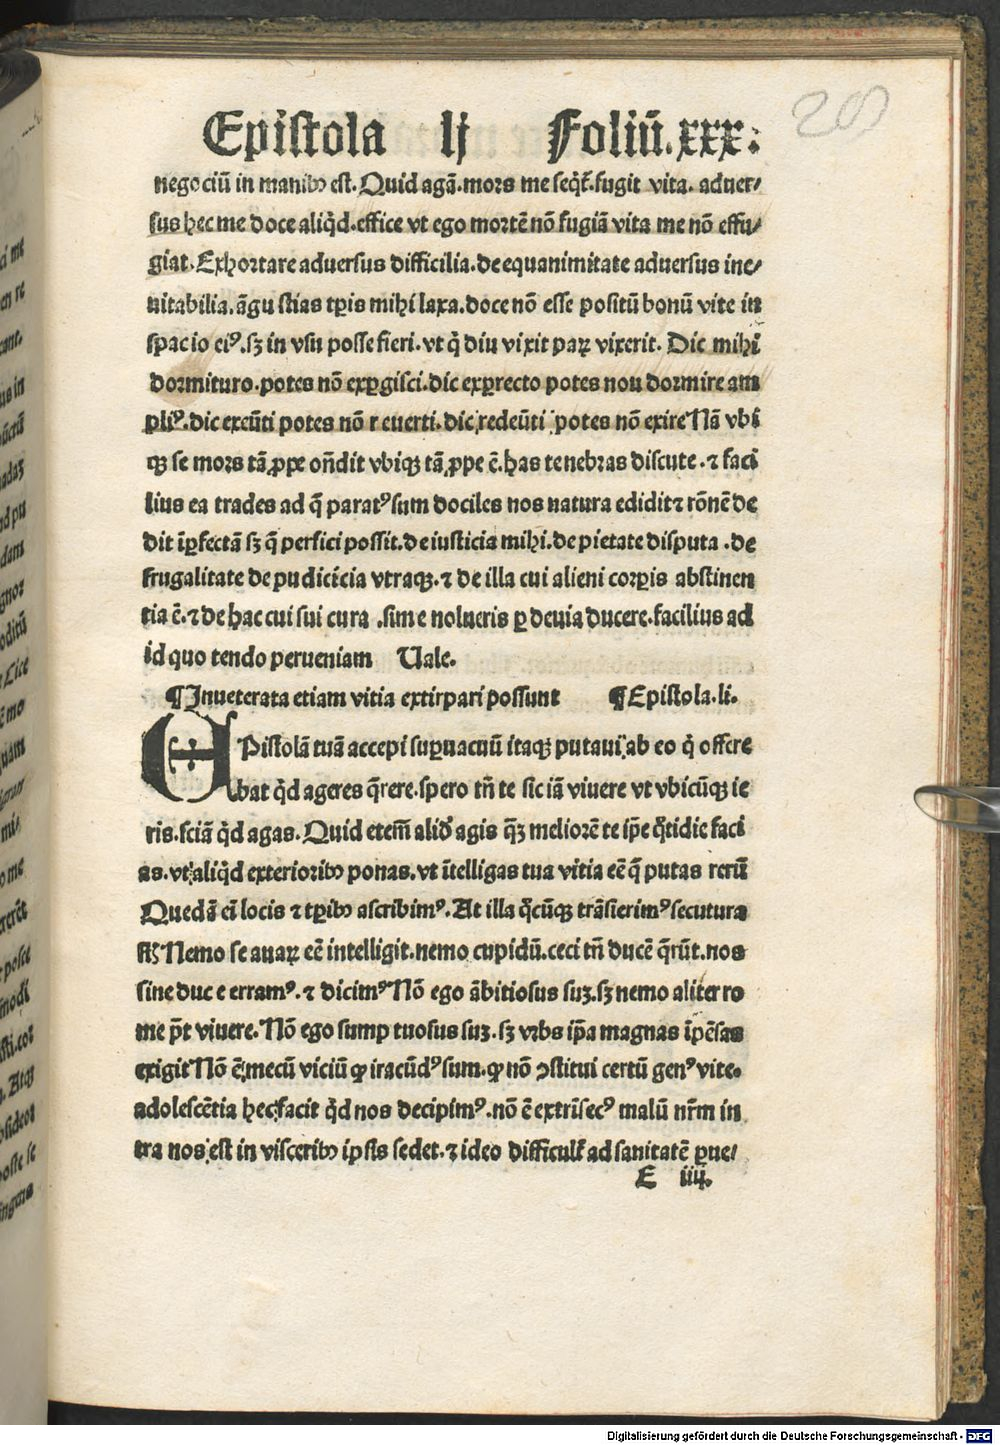 Epistola lj Foliū.xxx:
negociū in manibꝰ est. Quid agā. mors me seq̄t. fugit vita. aduer/
sus hec me doce aliq̄d. effice vt ego mortē nō fugiā vita me nō effu/
giat. Exhortare aduersus difficilia. de equanimitate aduersus ine/
uitabilia. āgustias tꝑis mihi laxa. doce nō esse positū bonū vite in
spacio eiꝰ. sꝫ in vsu posse fieri. vt q̄ diu vixit paꝝ vixerit. Dic mihi
dormituro. potes nō exꝑgisci. dic exꝑrecto potes non dormire am
pliꝰ. dic exeūti potes nō reuerti. dic redeūti potes nō exire Nā vbi
qꝫ se mors tā ꝓpe oñdit vbiqꝫ tā ꝓpe ē. has tenebras discute. ⁊ faci
lius ea trades ad q̄ paratꝰ sum dociles nos natura edidit ⁊ rōnē de
dit īꝑfectā sꝫ q̄ perfici possit. de iusticia mihi. de pietate disputa. de
frugalitate de pudicicia vtraqꝫ. ⁊ de illa cui alieni corꝑis abstinen
tia ē. ⁊ de hac cui sui cura. si me nolueris ꝑ deuia ducere. facilius ad
id quo tendo perueniam Uale.
¶ Inueterata etiam vitia extirpari possunt ¶ Epistola. li.
EPistolā tuā accepi suꝑuacuū itaqꝫ putaui ab eo q̄ offere
bat q̄d ageres q̄rere. spero tñ te sic iā viuere vt vbicūqꝫ ie
ris. sciā q̄d agas. Quid etem̄ aliđ agis q̄ꝫ meliorē te ip̄e q̄tidie faci
as. vt aliq̄d exterioribꝰ ponas. vt ītelligas tua vitia eē q̄ putas rerū
Quedā ei locis ⁊ tꝑibꝰ ascribimꝰ. At illa q̄cūqꝫ trāsierimꝰ secutura
st̄ Nemo se auaꝝ eē intelligit. nemo cupidū. ceci tñ ducē q̄rūt. nos
sine duce erramꝰ. ⁊ dicimꝰ Nō ego ābitiosus suꝫ. sꝫ nemo aliter ro
me p̄t viuere. Nō ego sumptuosus suꝫ. sꝫ vrbs ip̄a magnas īpēsas
exigit Nō ē mecū viciū ꝙ iracūdꝰ sum. ꝙ nō ↄstitui certū genꝰ vite.
adolescētia hec facit q̄d nos decipimꝰ. nō ē extrīsecꝰ malū nr̄m in
tra nos est in visceribꝰ ipsis sedet. ⁊ ideo difficult̄ ad sanitatē ꝑue/
E iiij.
Digitalisierung gefördert durch die Deutsche Forschungsgemeinschaft - DFG